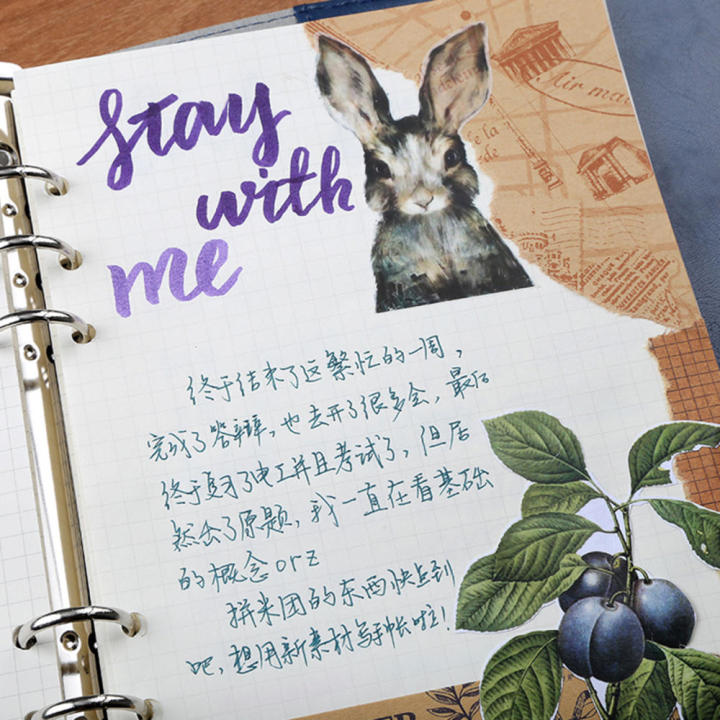 stay
with
me
Air ma
de la
de
终于结束了这繁忙的一周，
完成了答辩，也去开了很多会，最后
终于复习了电工并且考试了，但居
然出了原题，我一直在看基础
的概念orz
拼米团的东西快点到
吧，想用新素材写手帐啦！